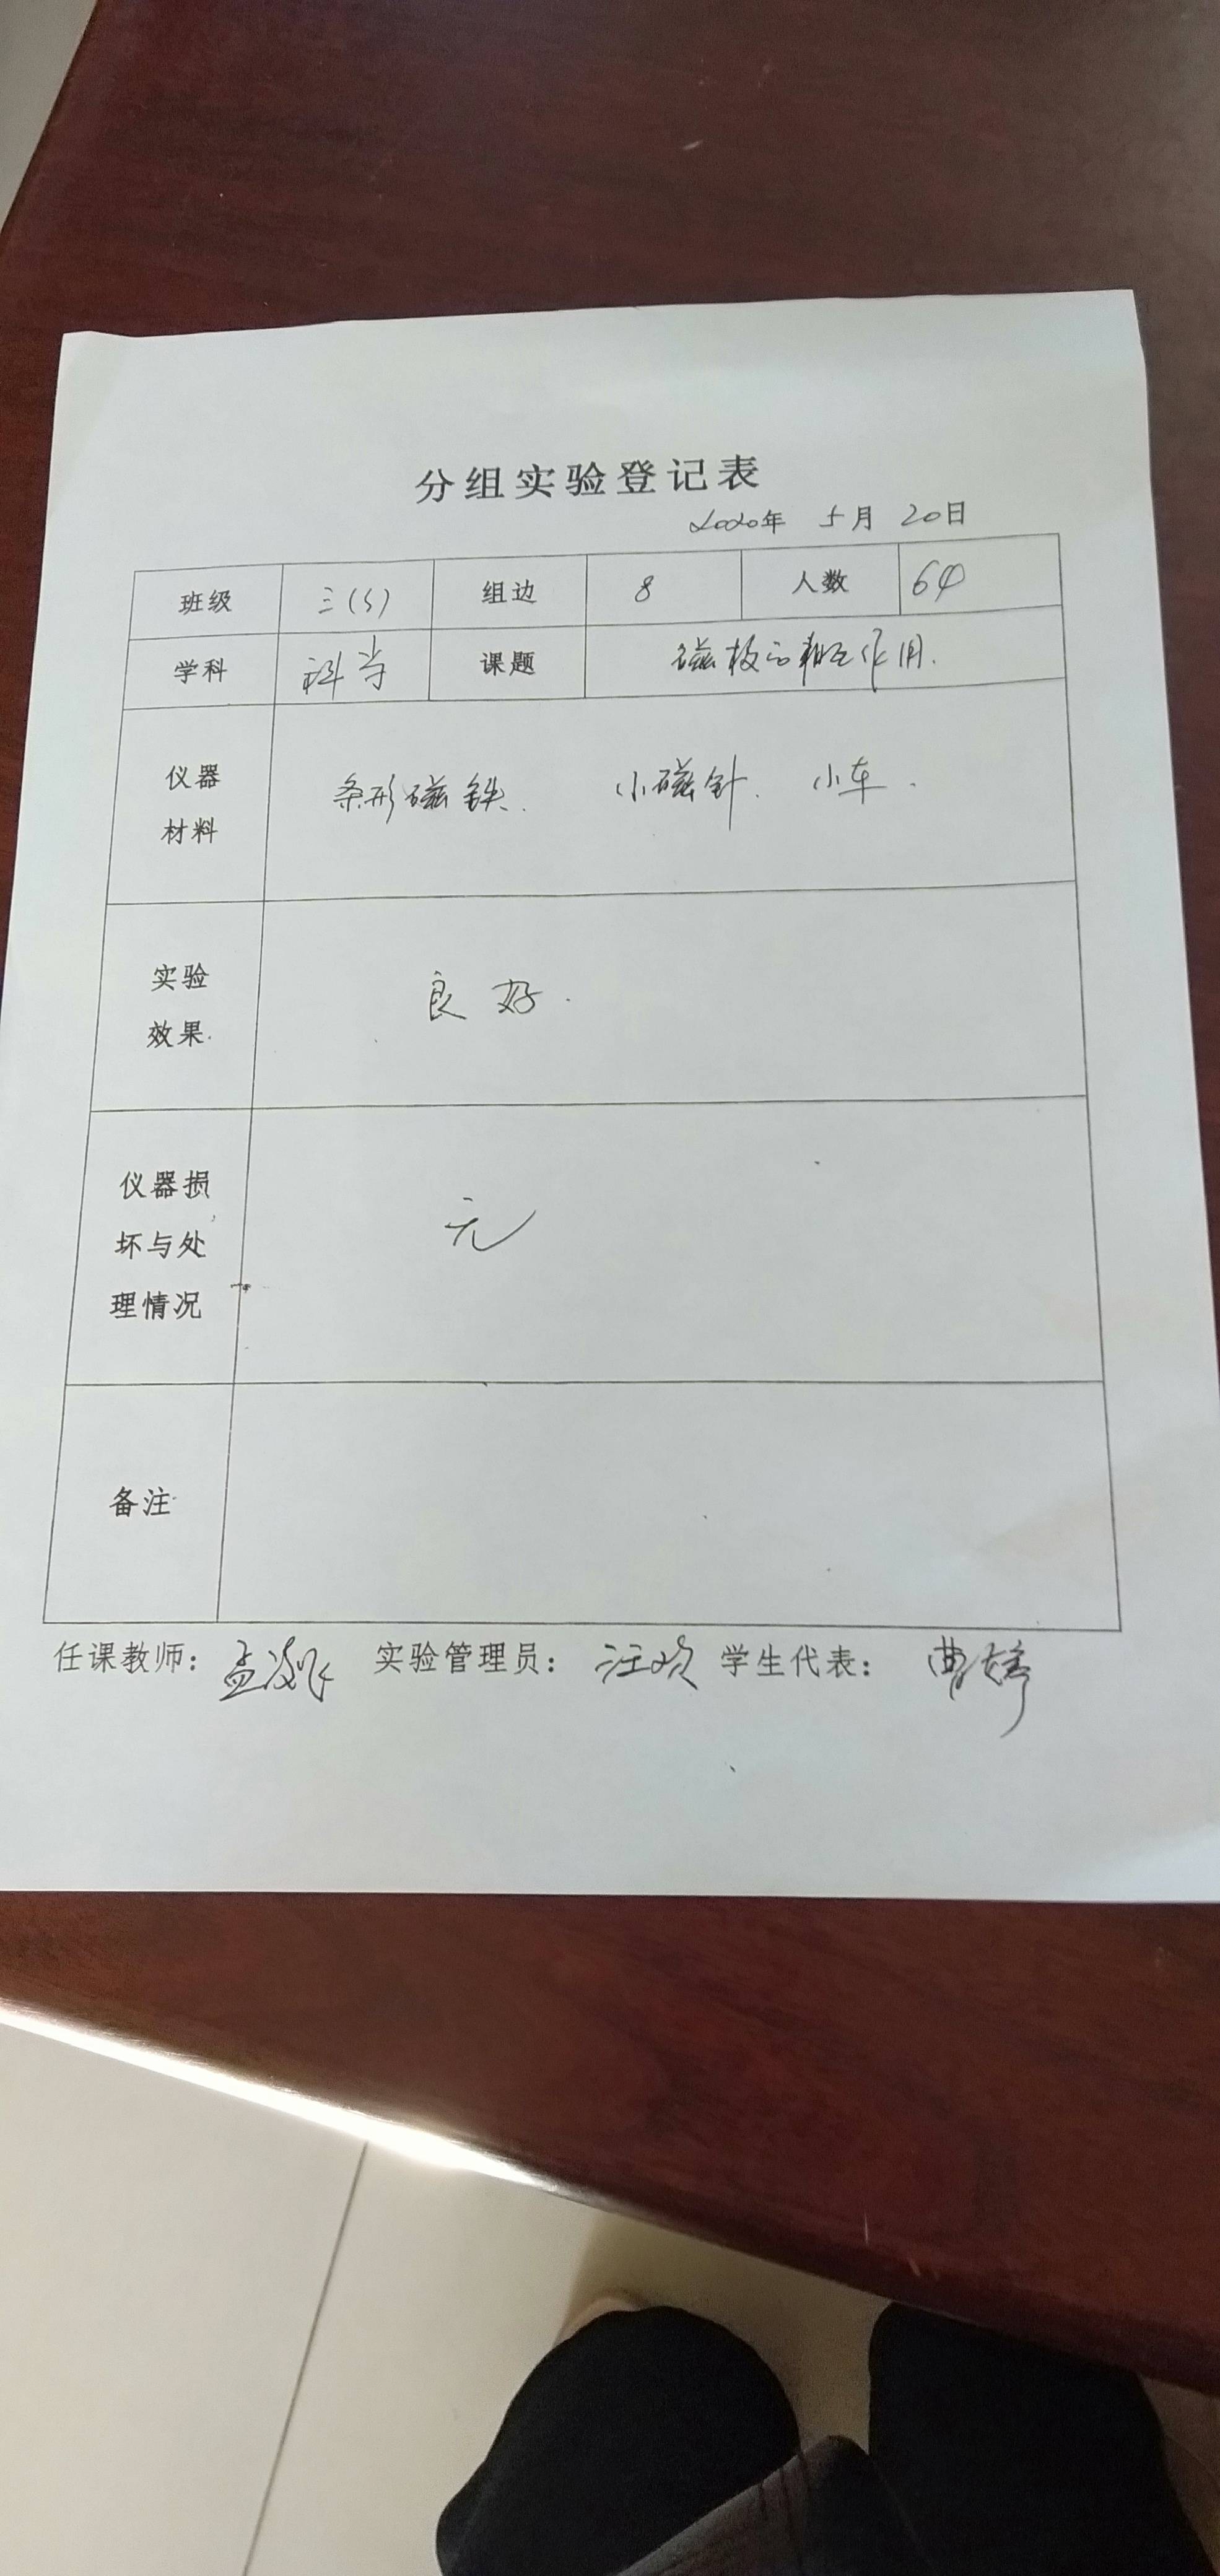 分组实验登记表
2020年 5月 20日
班级 三(5) 组边 8 人数 64
学科 科学 课题 磁极的相互作用.
仪器
材料
条形磁铁. 小磁针. 小车.
实验
效果
良好.
仪器损
坏与处
理情况
无
备注
任课教师: 孟 实验管理员: 汪欢 学生代表: 曹婷